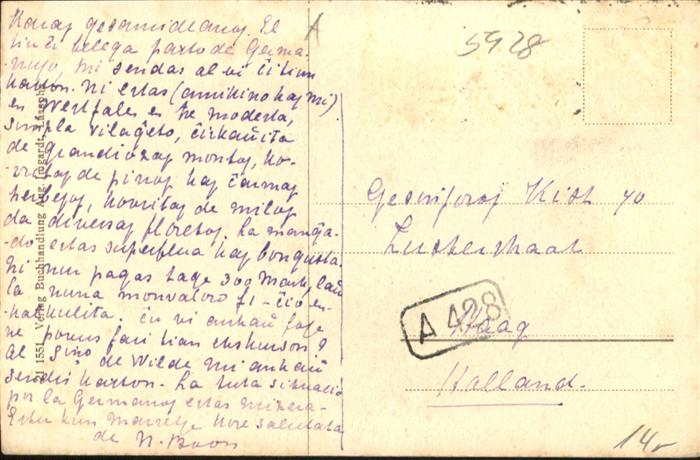 Karaj gesamideanoj. El
tiu ĉi belega parto de Germa-
nujo, mi sendas al vi ĉi tiun
karton. Ni estas (amikino kaj mi)
en Westfalen en tre modesta,
simpla vilaĝeto, ĉirkaŭita
de grandiozaj montoj, ko-
vritaj de pinoj kaj ĉarmaj
herbejoj, kovritaj de miloj
da diversaj floretoj. La manĝa-
do estas superflua kaj bongusta.
Ni nun pagas tage 300 Mark. laŭ
la nuna monvaloro fl - ĉio en-
kalkulita. Ĉu vi ankaŭ foje
ne povus fari tian ekskurson?
Al sino de Wilde mi ankaŭ
sendis karton. La tuta situacio
por la Germanoj estas mizera.
Estu kun Marretje kore salutata
de N. Boon
21 1551 Verlag Buchhandlung Aug. Ingardt, Laasphe
5928
Gesinjoroj Kist
Haag
Holland.
A 428
14